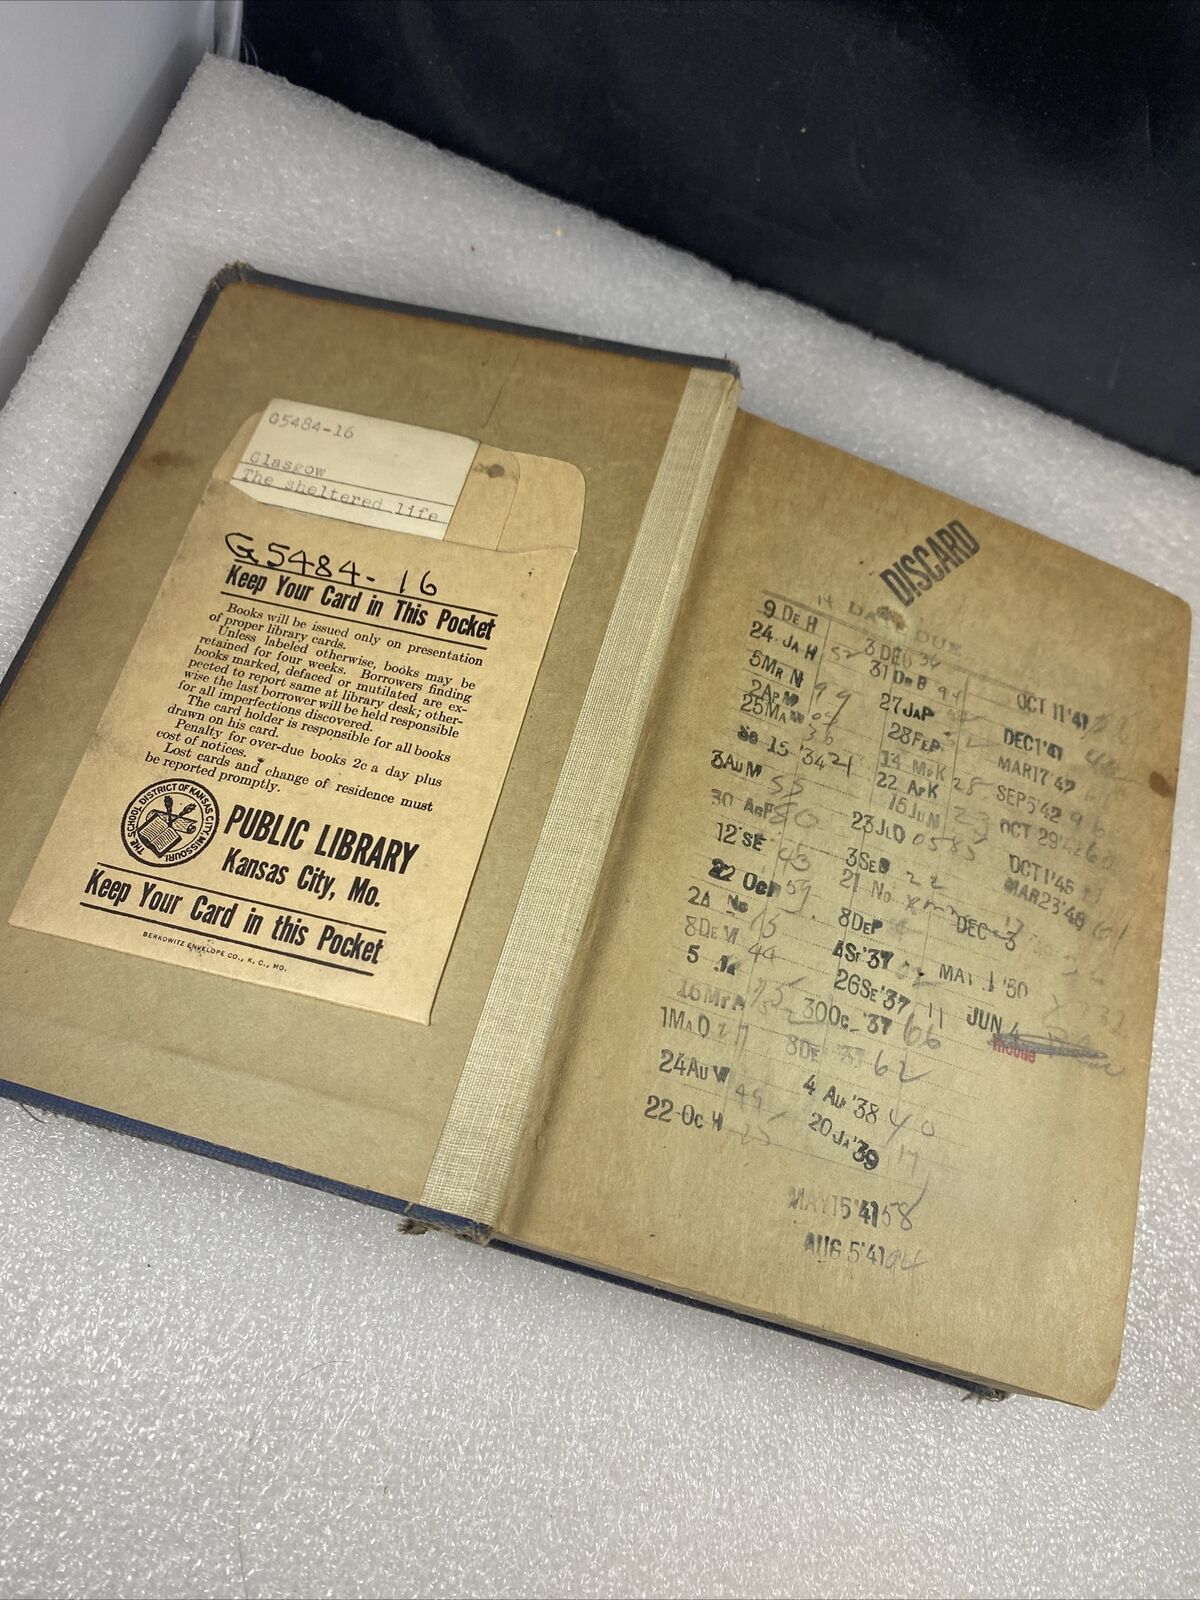 G5484-16
Glasgow
The sheltered life
G5484-16
Keep Your Card in This Pocket
Books will be issued only on presentation
of proper library cards.
Unless labeled otherwise, books may be
retained for four weeks. Borrowers finding
books marked, defaced or mutilated are ex-
pected to report same at library desk; other-
wise the last borrower will be held responsible
for all imperfections discovered.
The card holder is responsible for all books
drawn on his card.
Penalty for over-due books 2c a day plus
cost of notices.
Lost cards and change of residence must
be reported promptly.
THE SCHOOL DISTRICT OF KANSAS CITY, MISSOURI
PUBLIC LIBRARY
Kansas City, Mo.
Keep Your Card in this Pocket
BERKOWITZ ENVELOPE CO., K. C., MO.
DISCARD
9 DE H
24 JA H
5 MR N
25 MA
Se 15 '34 21
3 AU M 55
30 AGP 80
12 SE 43
22 OCP 59
24 No 15
8 DE 44
5 JA
1 MA O
24 AU 49
22 Oc H 25
3 DEC
31 DE B 94
27 JAP
28 FEP
14 MRK
22 APK 28
15 JUN 23
23 JLO 0585
3 SE 22
21 No
8 DEP
4 SE '37
26 SE '37 11
30 Oc '37 66
8 DE 62
4 AU '38 40
20 JA '39 17
MAY 15 '41 58
AUG 5 '41 94
OCT 11 '41
DEC 1 '41
MAR 17 '42
SEP 5 '42 96
OCT 29
OCT 1 '45
MAR 23 '48
DEC
MAY 1 '50
JUN 4